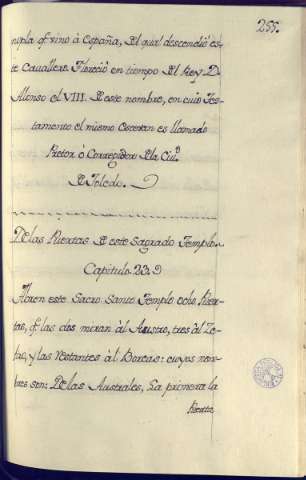 255.
nupla q̃ vino à España, del qual descendió es-
te Cavallero. Floreció en tiempo del Rey D.
Alonso el VIII. de este nombre, en cuio Tes-
tamento el mismo Estevan es llamado
Pretor ò Corregidor de la Ciu.d
de Toledo.
De las Puertas de este Sagrado Templo.
Capitulo. 23.
Abren este Sacro Santo Templo ocho Puer-
tas, q̃ las dos miran àl Austro, tres àl Ze-
firo, y las restantes àl Boreas: cuyos nom-
bres son: De las Australes, La primera la
Puerta